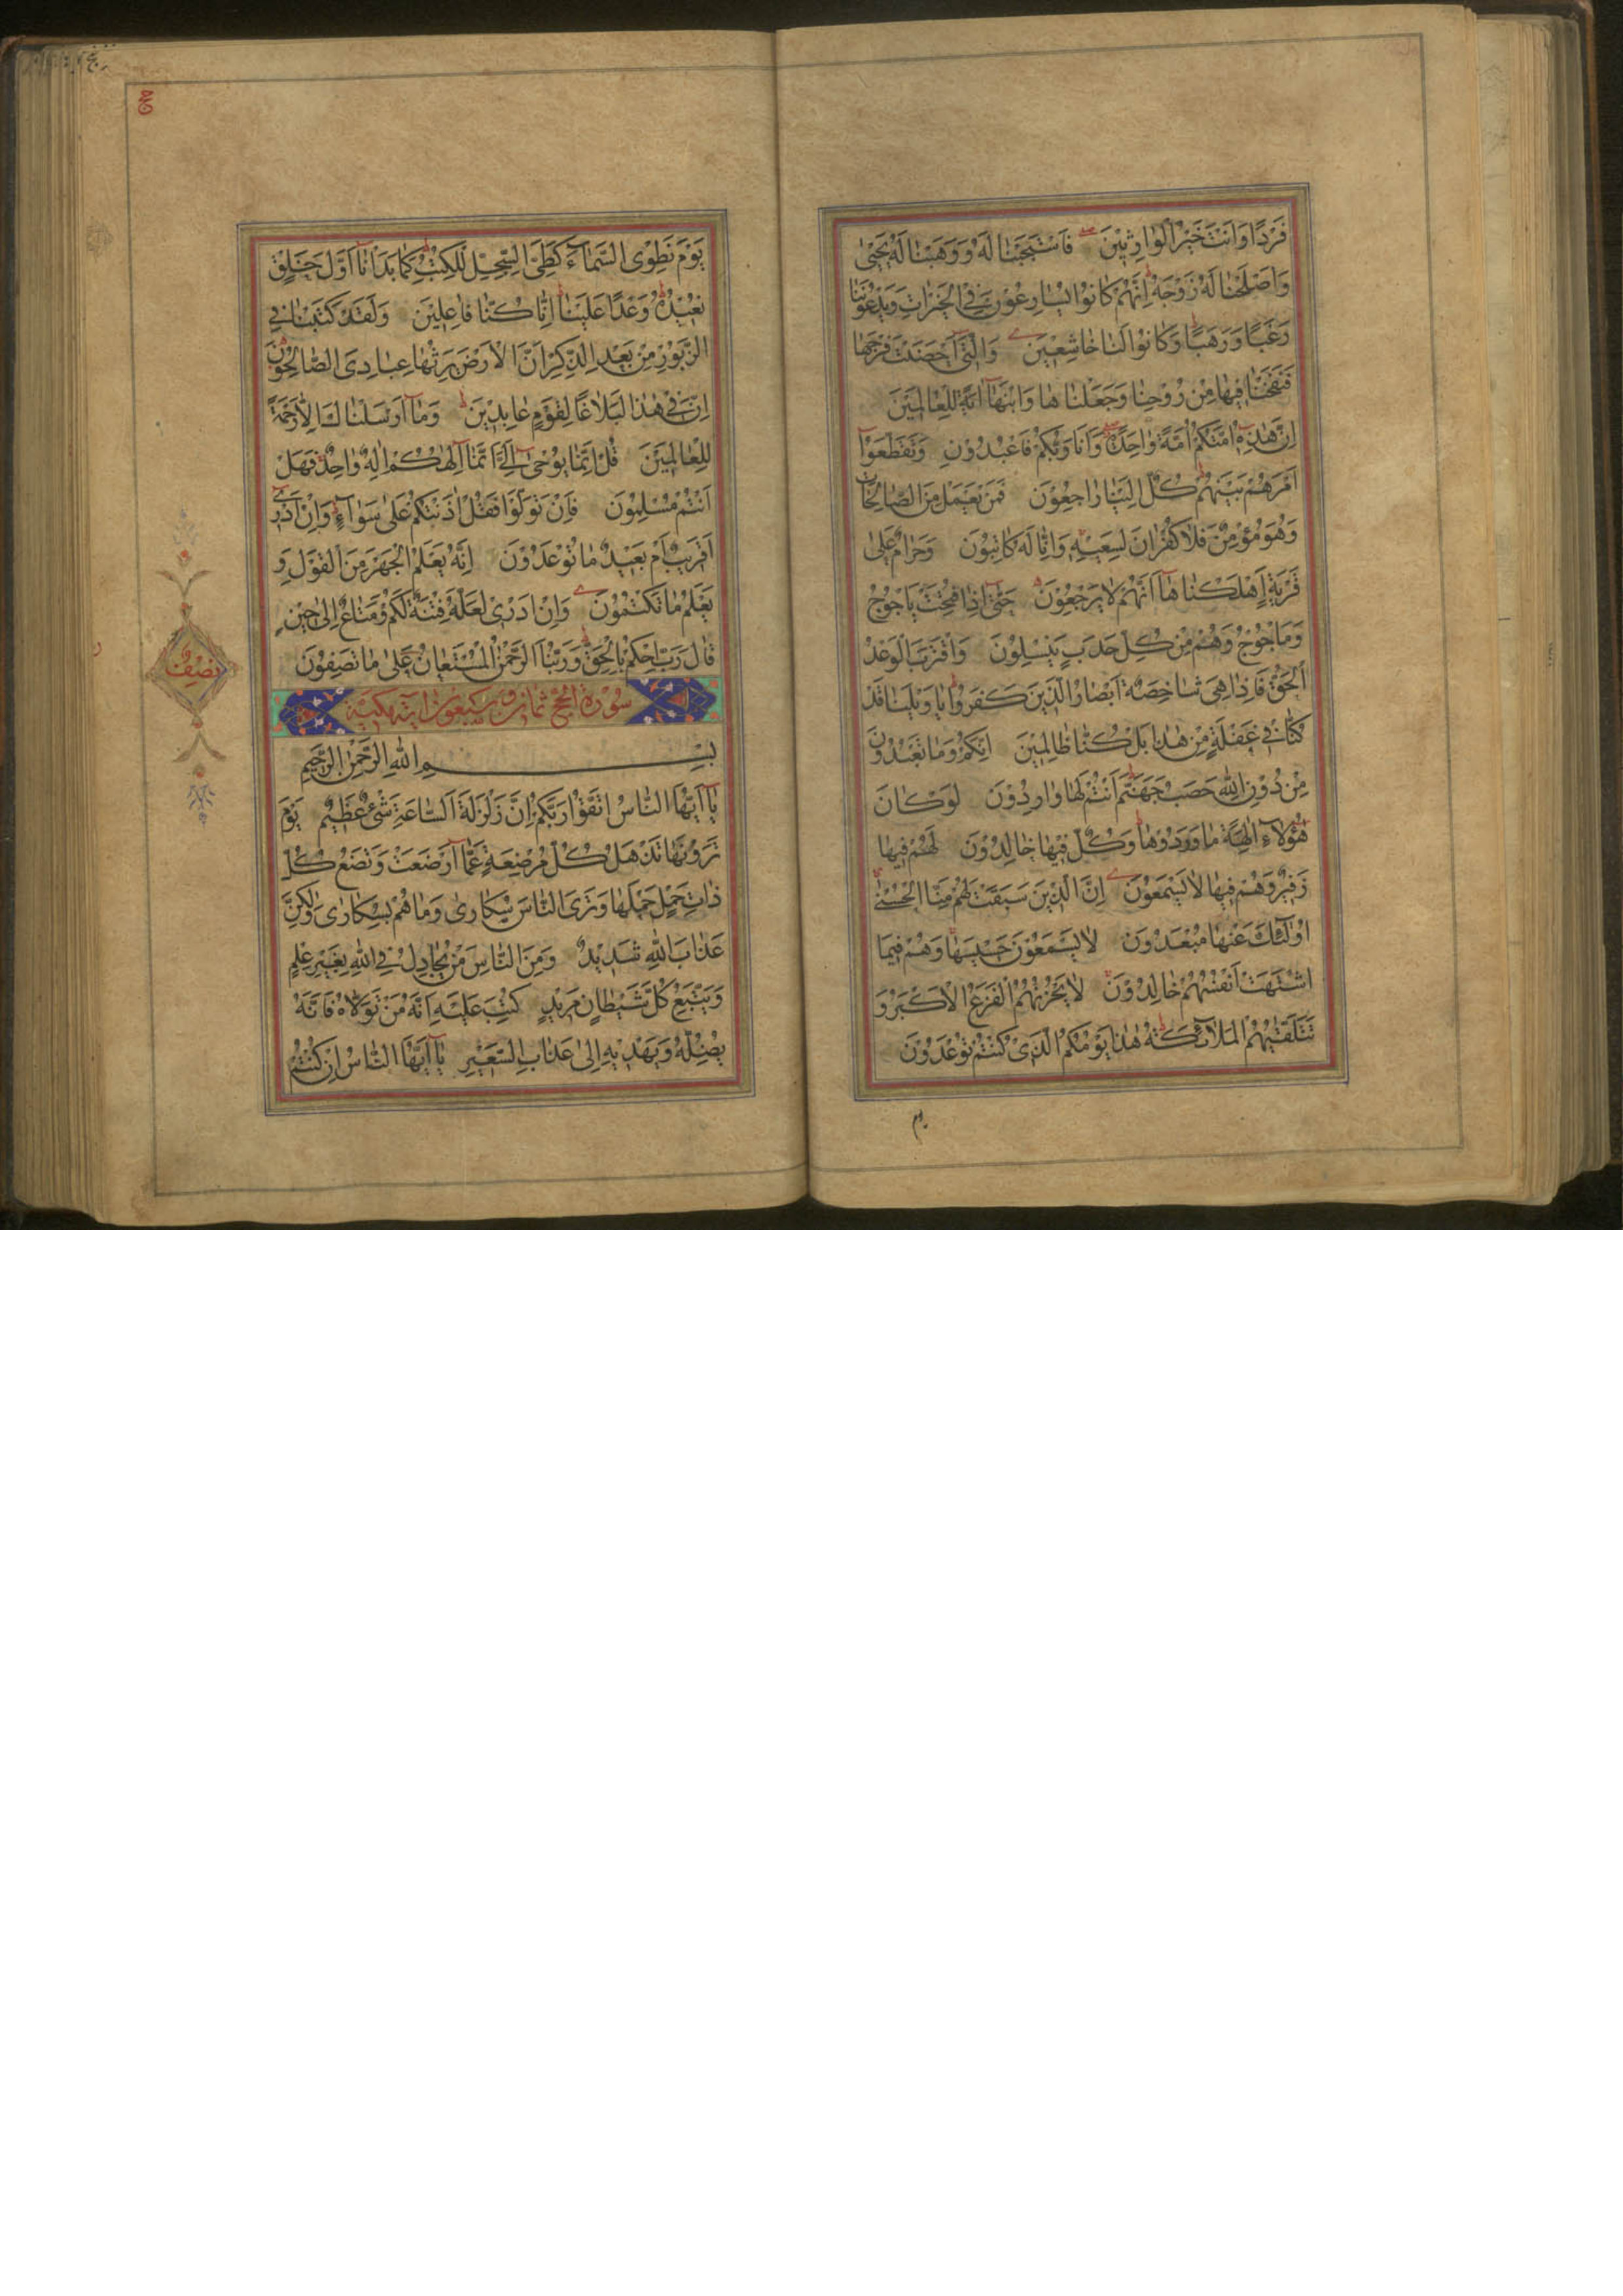 فَرْدًا وَاَنْتَ خَيْرُ الْوٰارِثِيْنَ فَاسْتَجَبْنٰا لَهُ وَوَهَبْنٰا لَهُ يَحْيٰى
وَاَصْلَحْنٰا لَهُ زَوْجَهُ اِنَّهُمْ كٰانُوْا يُسٰارِعُوْنَ فِى الْخَيْرٰاتِ وَيَدْعُوْنَنٰا
رَغَبًا وَرَهَبًا وَكٰانُوْا لَنٰا خٰاشِعِيْنَ وَالَّتِىْ اَحْصَنَتْ فَرْجَهٰا
فَنَفَخْنٰا فِيْهٰا مِنْ رُوْحِنٰا وَجَعَلْنٰاهٰا وَابْنَهٰا اٰيَةً لِلْعٰالَمِيْنَ
اِنَّ هٰذِهٖ اُمَّتُكُمْ اُمَّةً وٰاحِدَةً وَاَنَا رَبُّكُمْ فَاعْبُدُوْنِ وَتَقَطَّعُوْا
اَمْرَهُمْ بَيْنَهُمْ كُلٌّ اِلَيْنٰا رٰاجِعُوْنَ فَمَنْ يَعْمَلْ مِنَ الصّٰالِحٰاتِ
وَهُوَ مُؤْمِنٌ فَلٰا كُفْرٰانَ لِسَعْيِهٖ وَاِنّٰا لَهُ كٰاتِبُوْنَ وَحَرٰامٌ عَلٰى
قَرْيَةٍ اَهْلَكْنٰاهٰا اَنَّهُمْ لٰا يَرْجِعُوْنَ حَتّٰى اِذٰا فُتِحَتْ يَاْجُوْجُ
وَمَاْجُوْجُ وَهُمْ مِنْ كُلِّ حَدَبٍ يَنْسِلُوْنَ وَاقْتَرَبَ الْوَعْدُ
الْحَقُّ فَاِذٰا هِىَ شٰاخِصَةٌ اَبْصٰارُ الَّذِيْنَ كَفَرُوْا يٰا وَيْلَنٰا قَدْ
كُنّٰا فِىْ غَفْلَةٍ مِنْ هٰذٰا بَلْ كُنّٰا ظٰالِمِيْنَ اِنَّكُمْ وَمٰا تَعْبُدُوْنَ
مِنْ دُوْنِ اللّٰهِ حَصَبُ جَهَنَّمَ اَنْتُمْ لَهٰا وٰارِدُوْنَ لَوْ كٰانَ
هٰؤُلٰاءِ اٰلِهَةً مٰا وَرَدُوْهٰا وَكُلٌّ فِيْهٰا خٰالِدُوْنَ لَهُمْ فِيْهٰا
زَفِيْرٌ وَهُمْ فِيْهٰا لٰا يَسْمَعُوْنَ اِنَّ الَّذِيْنَ سَبَقَتْ لَهُمْ مِنَّا الْحُسْنٰى
اُولٰئِكَ عَنْهٰا مُبْعَدُوْنَ لٰا يَسْمَعُوْنَ حَسِيْسَهٰا وَهُمْ فِيْمٰا
اشْتَهَتْ اَنْفُسُهُمْ خٰالِدُوْنَ لٰا يَحْزُنُهُمُ الْفَزَعُ الْاَكْبَرُ وَ
تَتَلَقّٰيهُمُ الْمَلٰائِكَةُ هٰذٰا يَوْمُكُمُ الَّذِىْ كُنْتُمْ تُوْعَدُوْنَ
يوم
حج
يَوْمَ نَطْوِى السَّمٰاءَ كَطَىِّ السِّجِلِّ لِلْكُتُبِ كَمٰا بَدَاْنٰا اَوَّلَ خَلْقٍ
نُعِيْدُهُ وَعْدًا عَلَيْنٰا اِنّٰا كُنّٰا فٰاعِلِيْنَ وَلَقَدْ كَتَبْنٰا فِى
الزَّبُوْرِ مِنْ بَعْدِ الذِّكْرِ اَنَّ الْاَرْضَ يَرِثُهٰا عِبٰادِىَ الصّٰالِحُوْنَ
اِنَّ فِىْ هٰذٰا لَبَلٰاغًا لِقَوْمٍ عٰابِدِيْنَ وَمٰا اَرْسَلْنٰاكَ اِلّٰا رَحْمَةً
لِلْعٰالَمِيْنَ قُلْ اِنَّمٰا يُوْحٰى اِلَىَّ اَنَّمٰا اِلٰهُكُمْ اِلٰهٌ وٰاحِدٌ فَهَلْ
اَنْتُمْ مُسْلِمُوْنَ فَاِنْ تَوَلَّوْا فَقُلْ اٰذَنْتُكُمْ عَلٰى سَوٰاءٍ وَاِنْ اَدْرِىْ
اَقَرِيْبٌ اَمْ بَعِيْدٌ مٰا تُوْعَدُوْنَ اِنَّهُ يَعْلَمُ الْجَهْرَ مِنَ الْقَوْلِ وَ
يَعْلَمُ مٰا تَكْتُمُوْنَ وَاِنْ اَدْرِىْ لَعَلَّهُ فِتْنَةٌ لَكُمْ وَمَتٰاعٌ اِلٰى حِيْنٍ
قٰالَ رَبِّ احْكُمْ بِالْحَقِّ وَرَبُّنَا الرَّحْمٰنُ الْمُسْتَعٰانُ عَلٰى مٰا تَصِفُوْنَ
سُوْرَة الحج ثمان وسبعون اية مكية
بِسْمِ اللّٰهِ الرَّحْمٰنِ الرَّحِيْمِ
يٰا اَيُّهَا النّٰاسُ اتَّقُوْا رَبَّكُمْ اِنَّ زَلْزَلَةَ السّٰاعَةِ شَىْءٌ عَظِيْمٌ يَوْمَ
تَرَوْنَهٰا تَذْهَلُ كُلُّ مُرْضِعَةٍ عَمّٰا اَرْضَعَتْ وَتَضَعُ كُلُّ
ذٰاتِ حَمْلٍ حَمْلَهٰا وَتَرَى النّٰاسَ سُكٰارٰى وَمٰا هُمْ بِسُكٰارٰى وَلٰكِنَّ
عَذٰابَ اللّٰهِ شَدِيْدٌ وَمِنَ النّٰاسِ مَنْ يُجٰادِلُ فِى اللّٰهِ بِغَيْرِ عِلْمٍ
وَيَتَّبِعُ كُلَّ شَيْطٰانٍ مَرِيْدٍ كُتِبَ عَلَيْهِ اَنَّهُ مَنْ تَوَلّٰاهُ فَاَنَّهُ
يُضِلُّهُ وَيَهْدِيْهِ اِلٰى عَذٰابِ السَّعِيْرِ يٰا اَيُّهَا النّٰاسُ اِنْ كُنْتُمْ
نصف